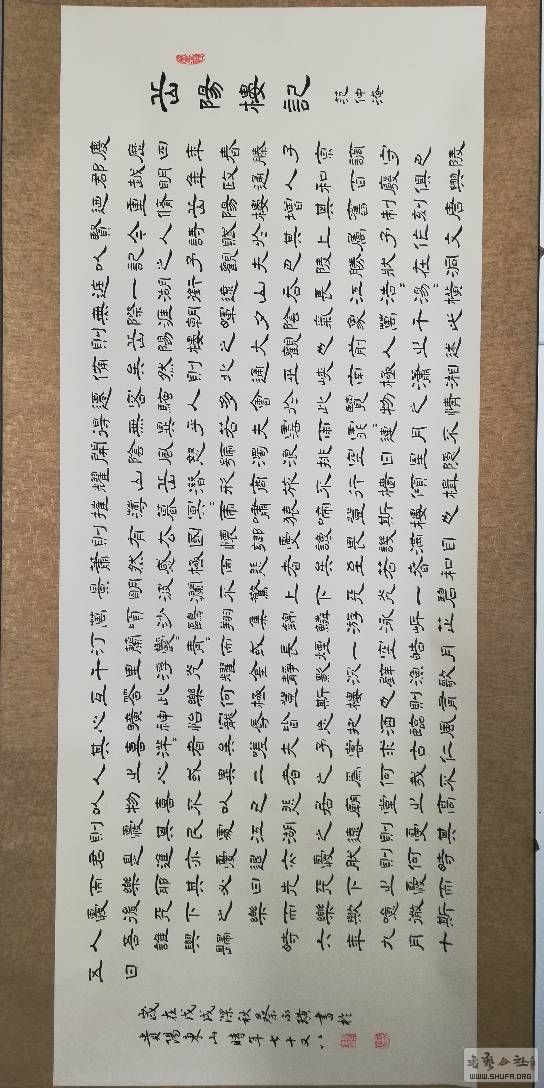 岳陽樓記
范仲淹
慶曆四年春滕子京謫守巴陵
郡越明年政通人和百廢俱興
迺重修岳陽樓增其舊制刻唐
賢今人詩賦於其上屬予作文
以記之予觀夫巴陵勝狀在洞
庭一湖銜遠山吞長江浩〻湯〻橫
無際涯朝暉夕陰氣象萬千此
則岳陽樓之大觀也前人之述
備矣然則北通巫峽南極瀟湘
遷客騷人多會於此覽物之情
得無異乎若夫霪雨霏〻連月不
開陰風怒號濁浪排空日星隱
耀山岳潛形商旅不行檣傾楫
摧薄暮冥〻虎嘯猿啼登斯樓也
則有去國懷鄉憂讒畏譏滿目
蕭然感極而悲者矣至若春和
景明波瀾不驚上下天光一碧
萬頃沙鷗翔集錦鱗游泳岸芷
汀蘭郁〻青〻而或長煙一空皓月
千里浮光耀金靜影沉璧漁歌
互答此樂何極登斯樓也則有
心曠神怡寵辱皆忘把酒臨風
其喜洋〻者矣嗟夫予嘗求古仁
人之心或異二者之為何哉不
以物喜不以己悲居廟堂之高
則憂其民處江湖之遠則憂其
君是進亦憂退亦憂然則何時
而樂耶其必曰先天下之憂而
憂後天下之樂而樂歟噫微斯
人吾誰與歸時六年九月十
五日
歲在戊戌深秋蔡永璜書於
貴陽東山時年七十又八
WWW.SHUFA.ORG